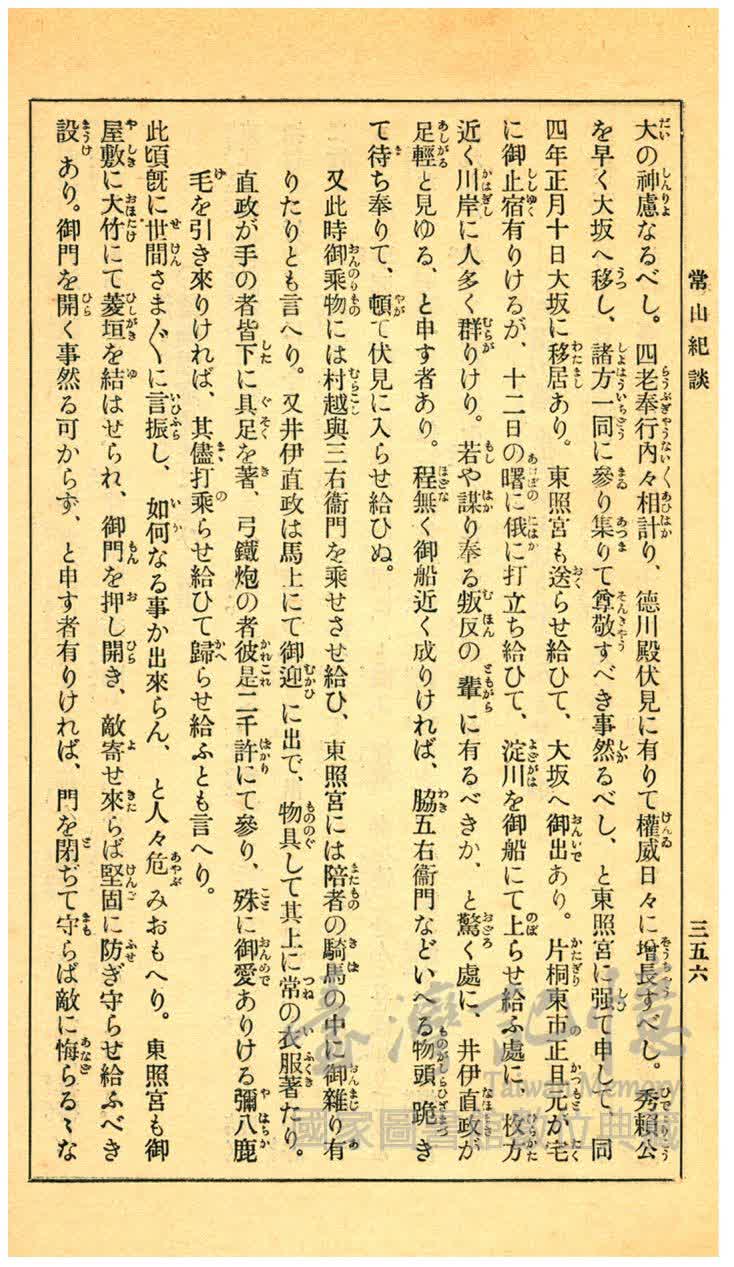 常山紀談
三五六
大の神慮なるべし。四老奉行內々相計り、德川殿伏見に有りて權威日々に增長すべし。秀賴公
を早く大坂へ移し、諸方一同に參り集りて尊敬すべき事然るべし、と東照宮に强て申して、同
四年正月十日大坂に移居あり。東照宮も送らせ給ひて、大坂へ御出あり。片桐東市正且元が宅
に御止宿有りけるが、十二日の曙に俄に打立ち給ひて、淀川を御船にて上らせ給ふ處に、枚方
近く川岸に人多く群りけり。若や謀り奉る叛反の輩に有るべきか、と驚く處に、井伊直政が
足輕と見ゆる、と申す者あり。程無く御船近く成りければ、脇五右衞門などいへる物頭跪き
て待ち奉りて、頓て伏見に入らせ給ひぬ。
又此時御乘物には村越與三右衞門を乘せさせ給ひ、東照宮には陪者の騎馬の中に御雜り有
りたりとも言へり。又井伊直政は馬上にて御迎に出で、物具して其上に常の衣服著たり。
直政が手の者皆下に具足を著、弓鐵炮の者彼是二千許にて參り、殊に御愛ありける彌八鹿
毛を引き來りければ、其儘打乘らせ給ひて歸らせ給ふとも言へり。
此頃旣に世間さま〴〵に言振し、如何なる事か出來らん、と人々危みおもへり。東照宮も御
屋敷に大竹にて菱垣を結はせられ、御門を押し開き、敵寄せ來らば堅固に防ぎ守らせ給ふべき
設あり。御門を開く事然る可からず、と申す者有りければ、門を閉ぢて守らば敵に悔らるゝな
臺灣記憶
Taiwan Memory
國家圖書館數位典藏